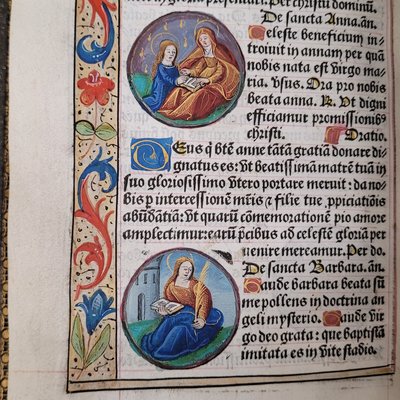 gloriosi presentari. Per christū dominū.
De sancta Anna. añ.
Celeste beneficium in-
troiuit in annam: per quā
nobis nata est virgo ma-
ria. Vsus. Ora pro nobis
beata anna. R. Vt digni
efficiamur promissionibꝰ
christi. Oratio.
Deus q̄ btē anne tātā gratiā donare di-
gnatus es: vt beatissimā matrē tuā in
suo gloriosissimo vtero portare meruit: da no-
bis p̄ intercessionem mr̄is ⁊ filie tue, ppiciatiōis
abūdātiā: Vt quarū cōmemorationē pio amore
amplectimur: earū p̄cibus ad celestē gloriā per-
uenire mereamur. Per do.
De sancta Barbara. añ.
Gaude barbara beata sū
me pollens in doctrina an
geli mysterio. Gaude vir
go deo grata: que baptistā
imitata es in vite stadio.